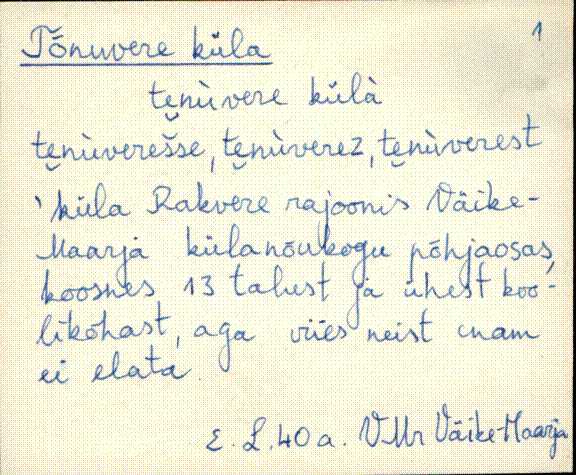 1
Tõnuvere küla
te̮nùvere külà
te̮nùverešse, te̮nùverez, te̮nùverest
'küla Rakvere rajoonis Väike-
Maarja külanõukogu põhjaosas,
koosnes 13 talust ja ühest koo-
likohast, aga viies neist enam
ei elata.
E. L. 40 a. VMr Väike-Maarja